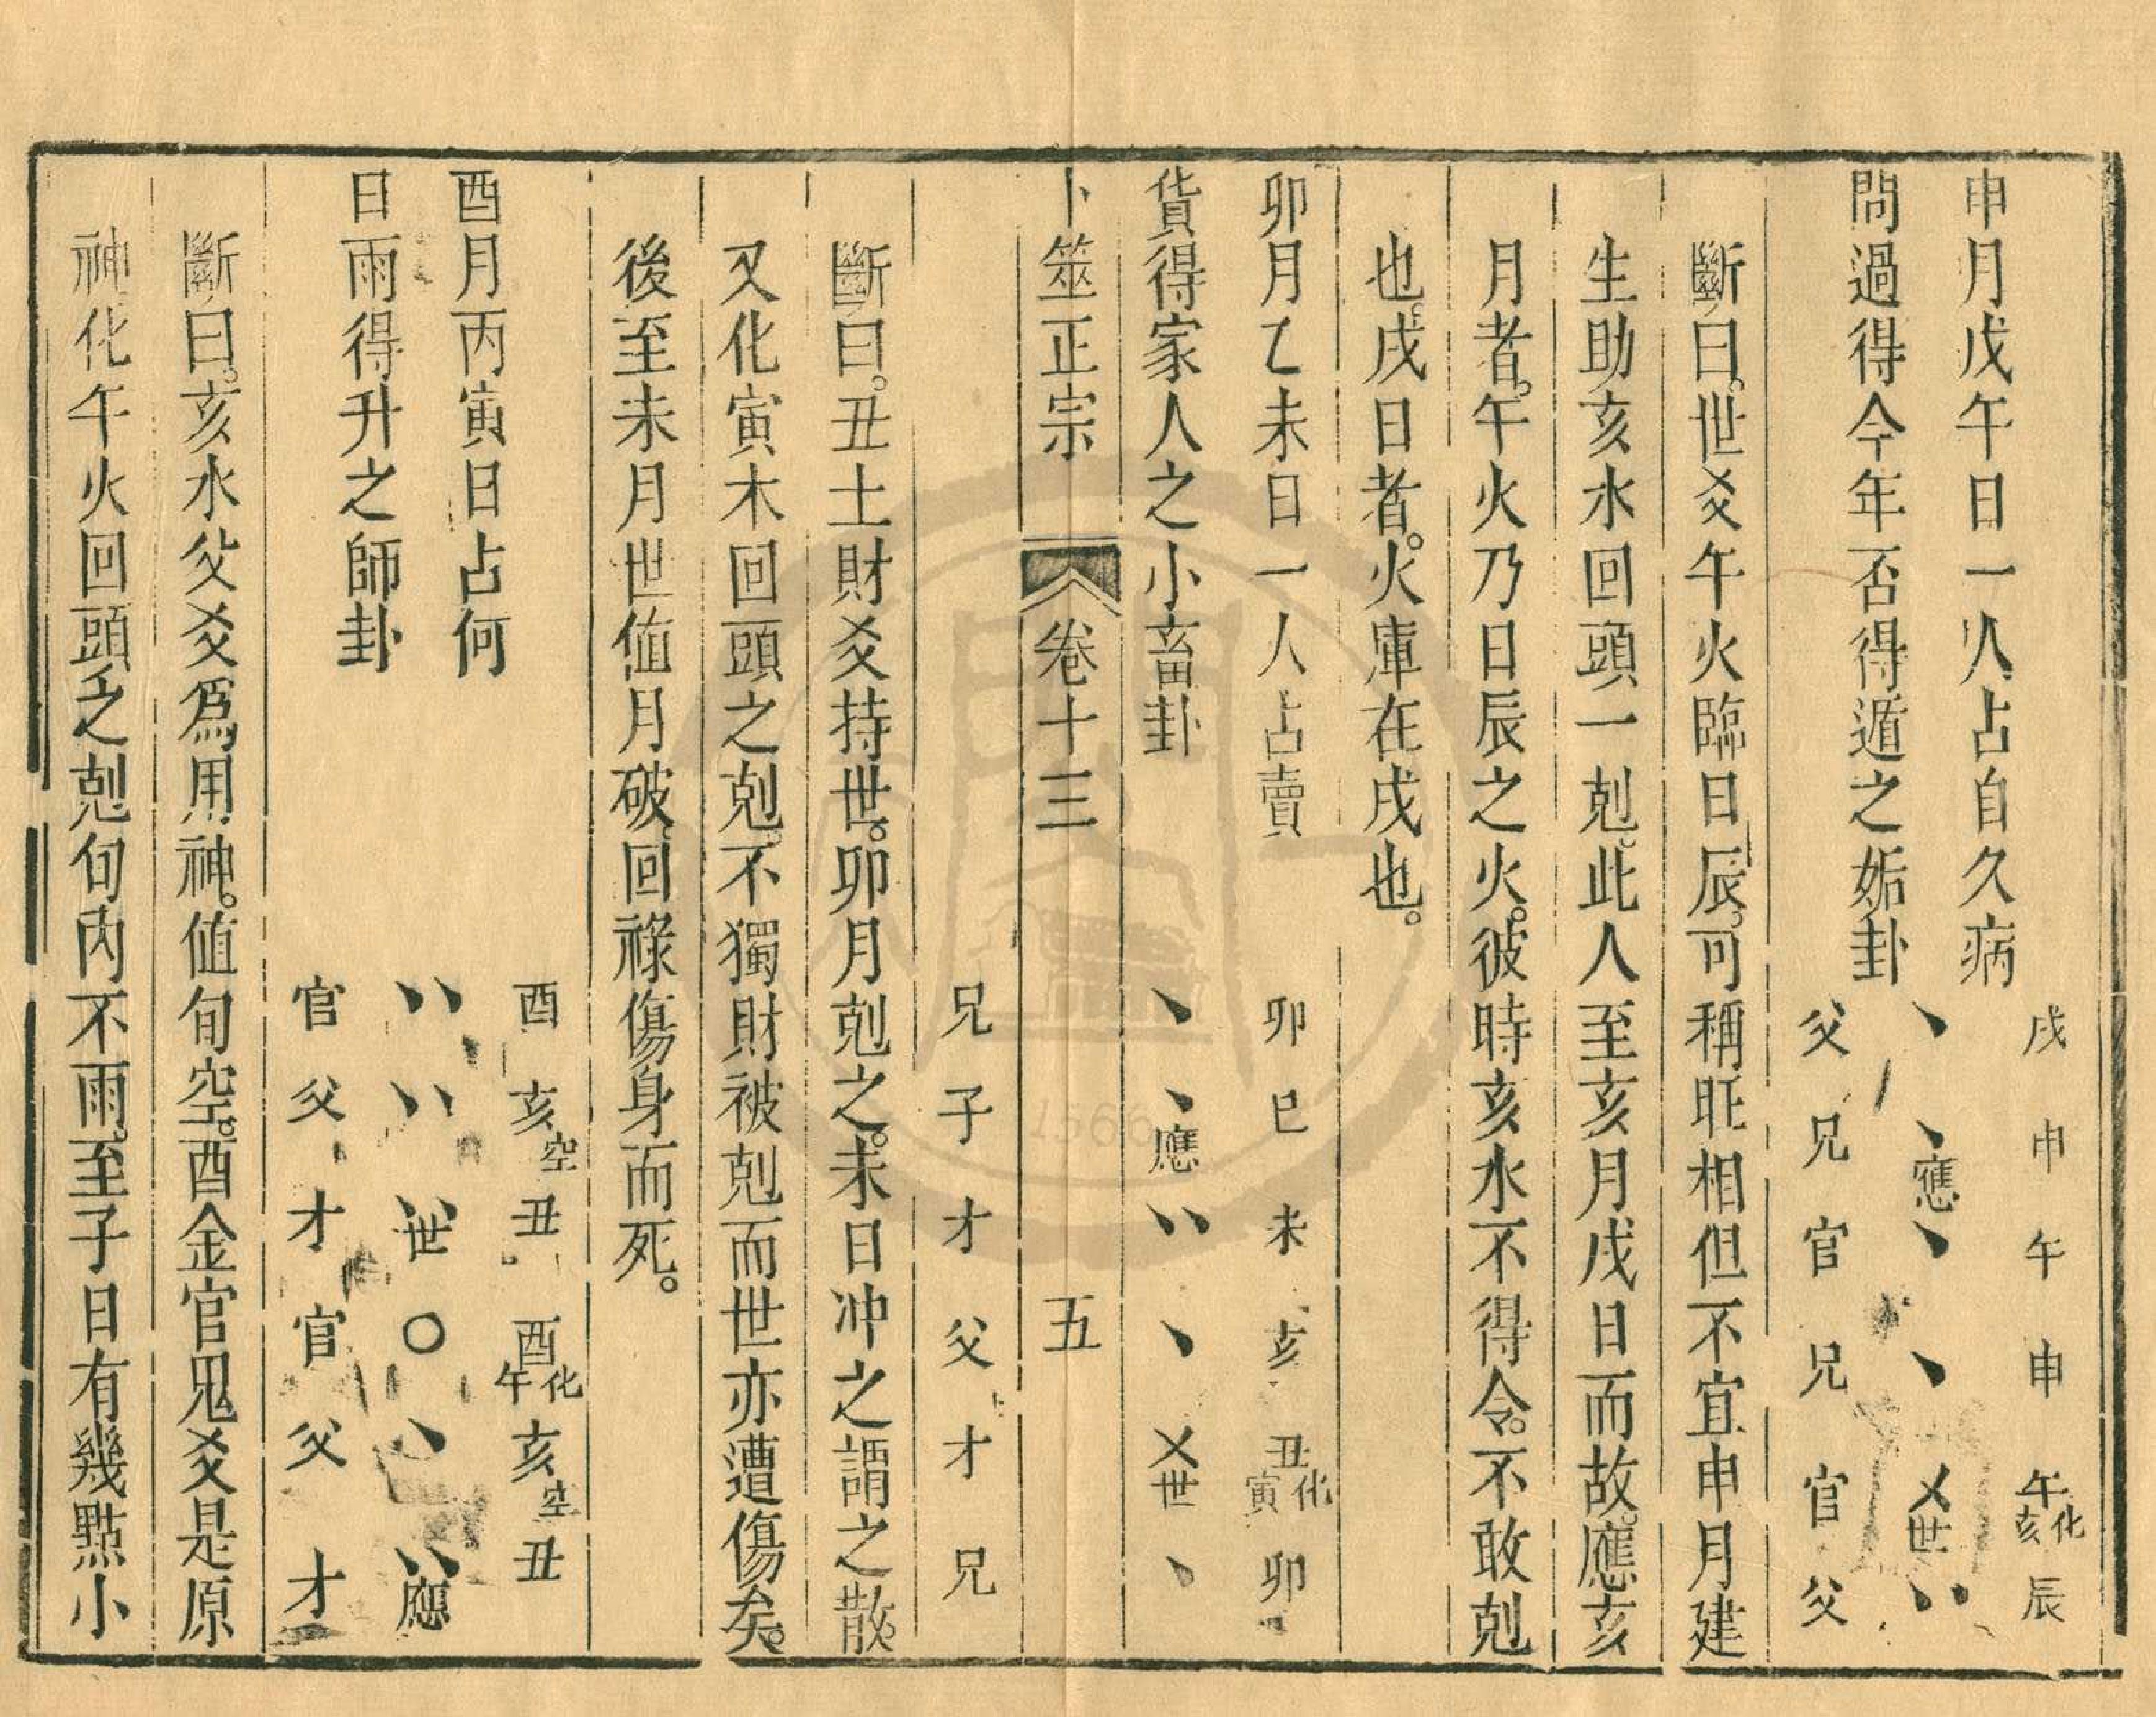 申月戊午日一人占自久病
問過得今年否得遁之姤卦
戌 申 午 申 午化亥 辰
、 、應 、 、 乂世 〃
父 兄 官 兄 官 父
斷曰。世爻午火臨日辰。可稱旺相但不宜申月建
生助亥水回頭一剋。此人至亥月戌日而故。應亥
月者。午火乃日辰之火。彼時亥水不得令。不敢剋
也。戌日者。火庫在戌也。
卯月乙未日一人占賣
貨得家人之小畜卦
卯 巳 未 亥 丑化寅 卯
、 、應 〃 、 乂世 、
兄 子 才 父 才 兄
卜筮正宗 卷十三 五
斷曰。丑土財爻持世。卯月剋之。未日冲之謂之散。
又化寅木回頭之剋。不獨財被剋而世亦遭傷矣。
後至未月世值月破。回祿傷身而死。
酉月丙寅日占何
日雨得升之師卦
酉 亥空 丑 酉化午 亥空 丑
〃 〃 〃世 〇 、 〃應
官 父 才 官 父 才
斷曰。亥水父爻爲用神。值旬空。酉金官鬼爻是原
神化午火回頭之剋旬內不雨。至子日有幾點小